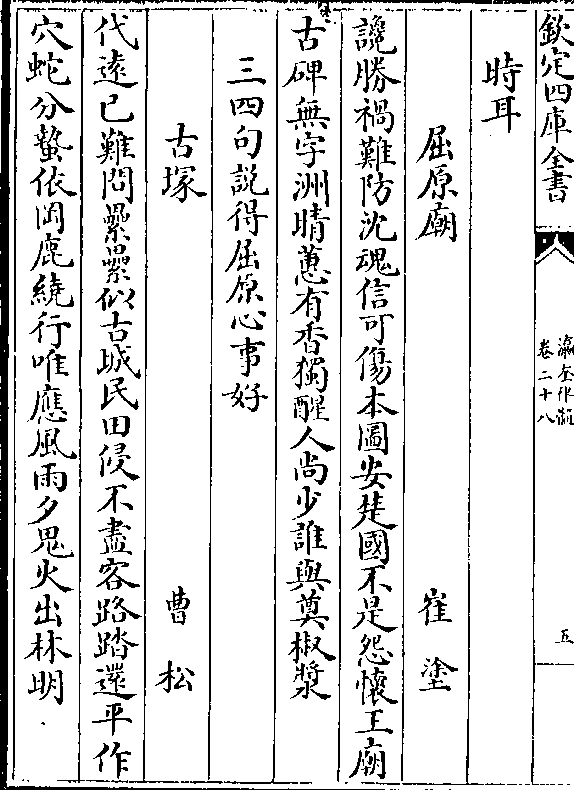 欽定四庫全書
瀛奎律髓
卷二十八
五
時耳
屈原廟 崔塗
讒勝禍難防沈魂信可傷本圖安楚國不是怨懷王廟
古碑無字洲晴蕙有香獨醒人尚少誰與奠椒漿
三四句説得屈原心事好
古塚 曹松
代逺已難問纍纍似古城民田侵不盡客路踏還平作
穴蛇分蟄依岡鹿繞行唯應風雨夕鬼火出林明